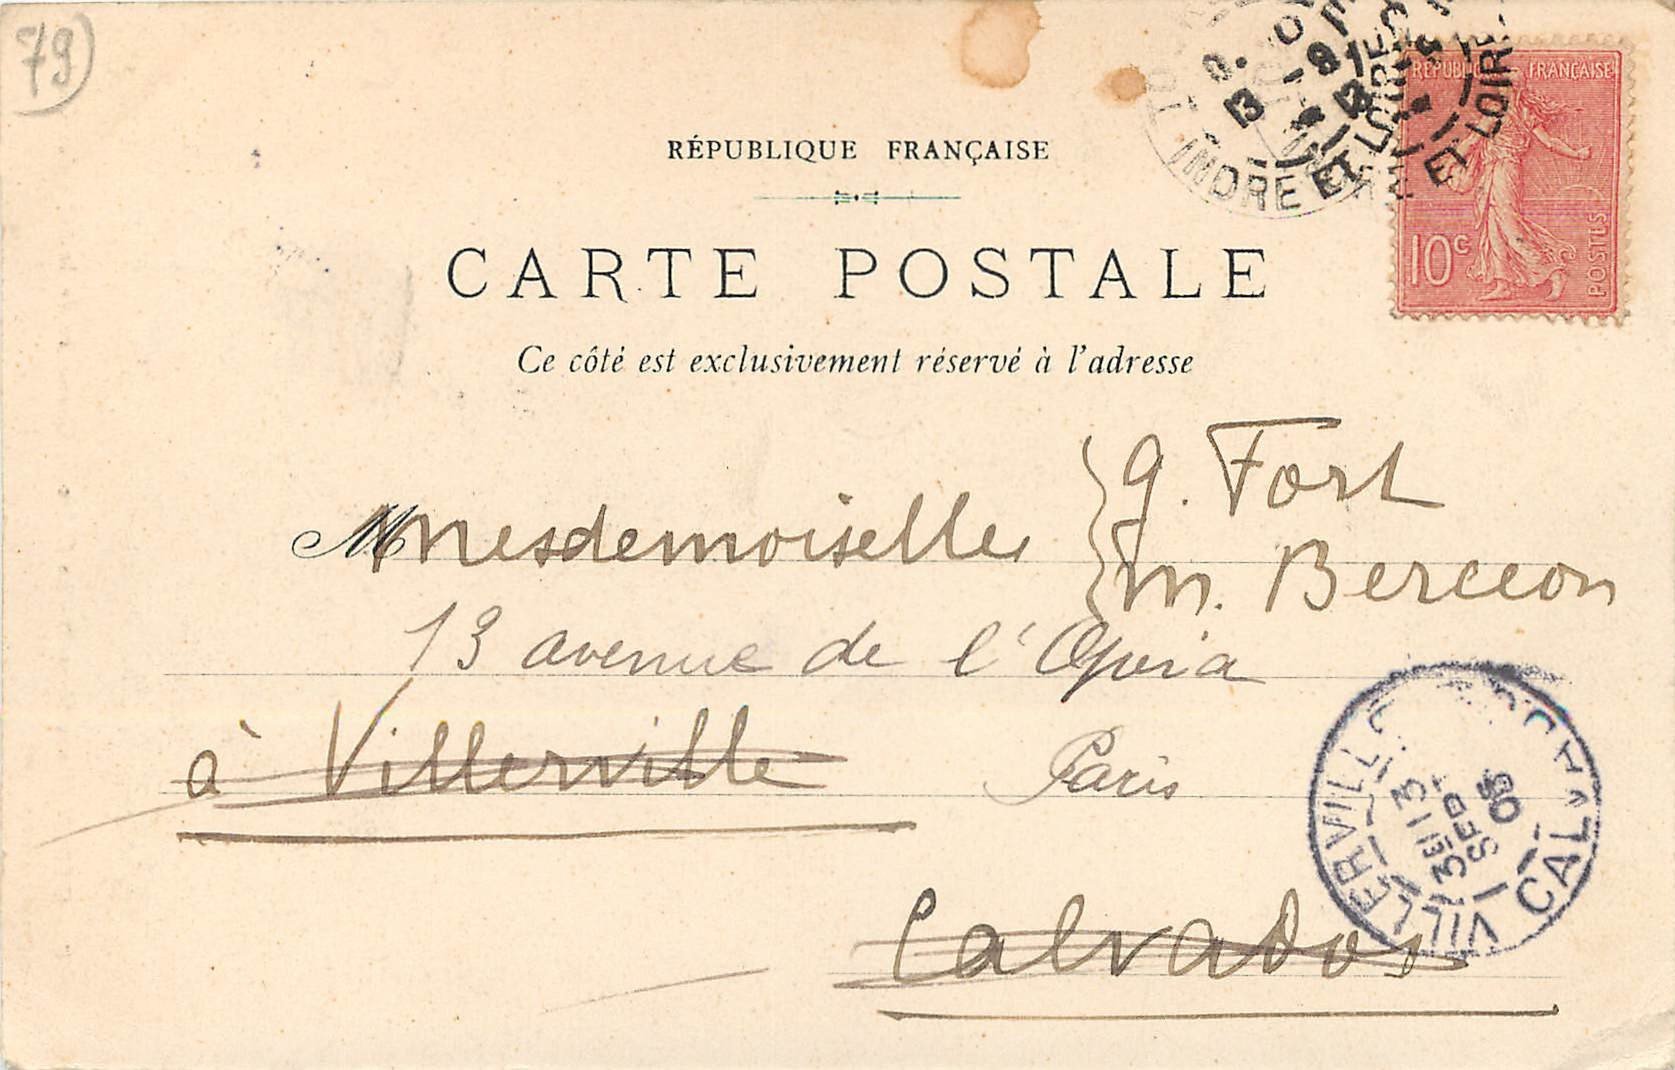 79
RÉPUBLIQUE FRANÇAISE
INDRE ET LOIRE
ET LOIRE
13
RÉPUBLIQUE FRANÇAISE
10c
POSTES
CARTE POSTALE
Ce côté est exclusivement réservé à l'adresse
G. Fort
M Mesdemoiselles
M. Berceon
13 avenue de l'Opéra
à Villerville Paris
VILLERVILLE CALVADOS
3E 13
SEPT
05
Calvados